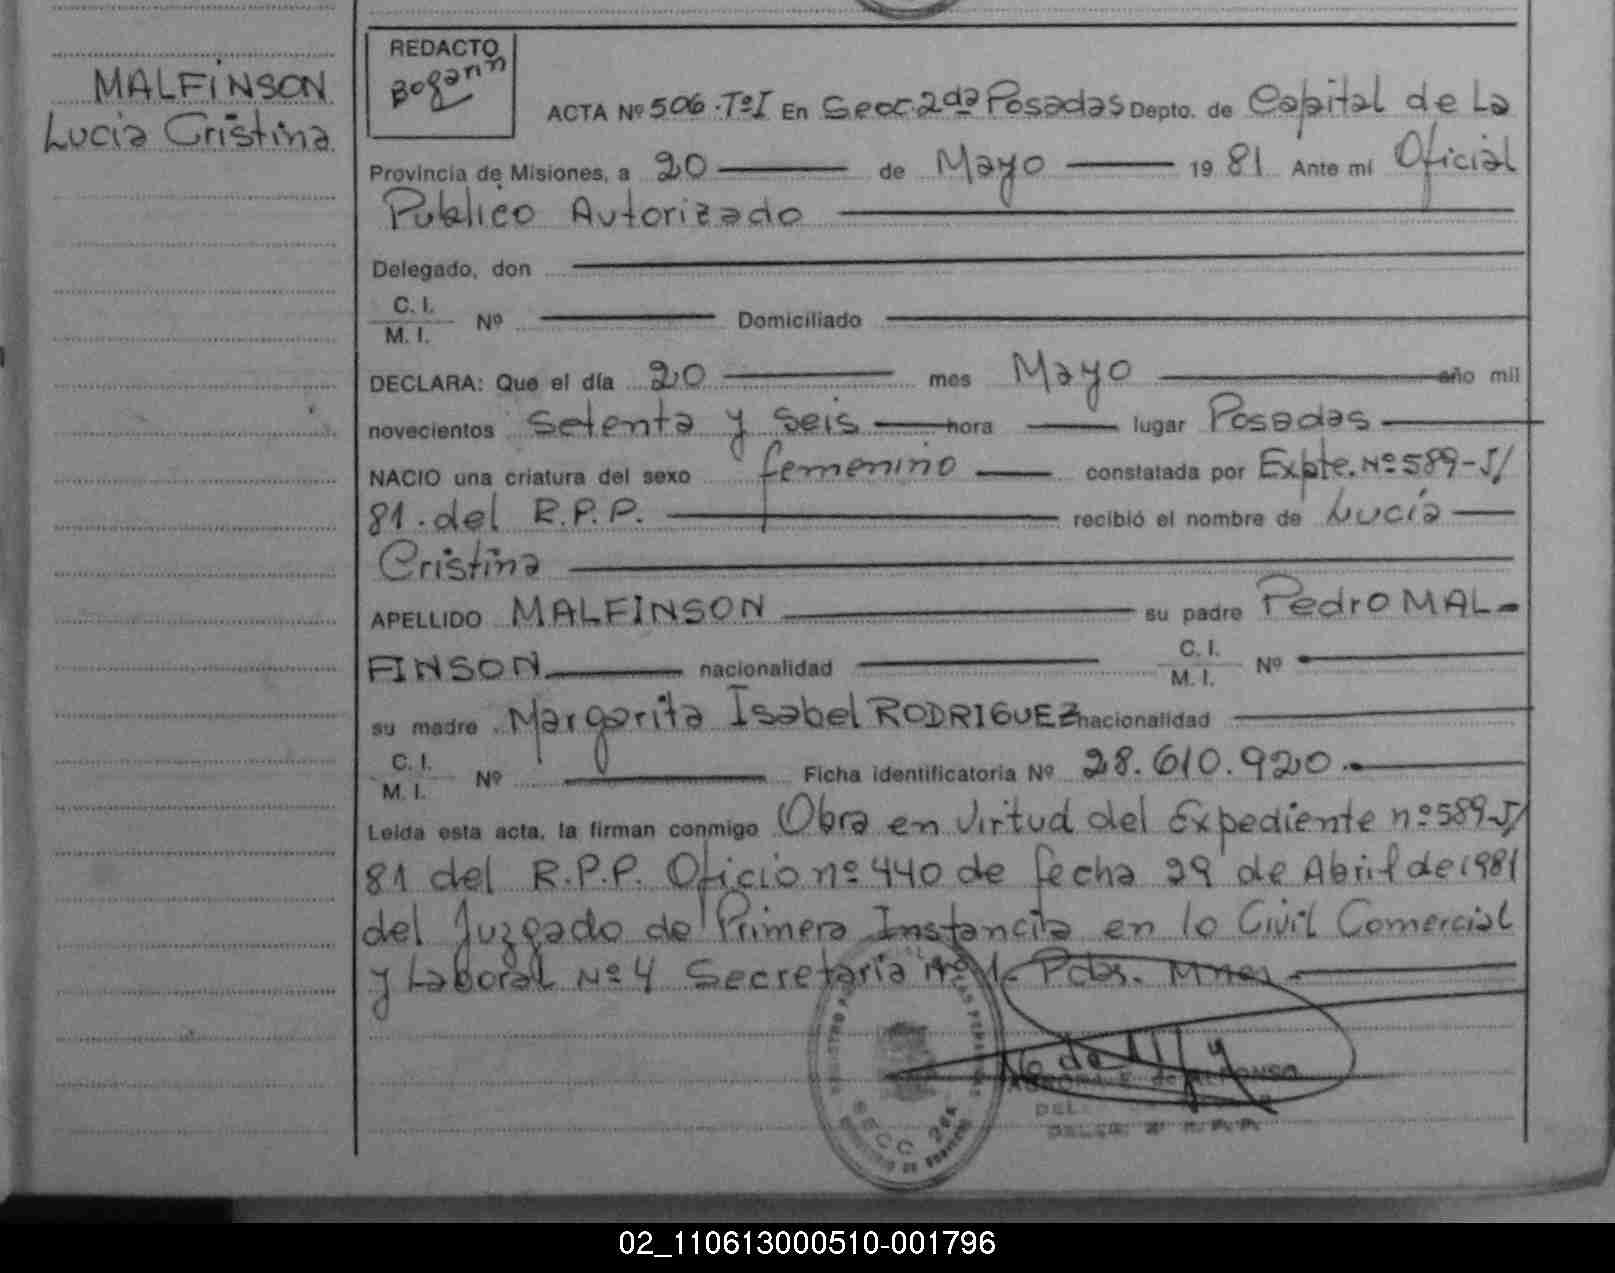 MALFINSON
Lucia Cristina
REDACTO
Bogarin
ACTA Nº 506.TºI En Secc.2da Posadas Depto. de Capital de La
Provincia de Misiones, a 20 de Mayo 1981 Ante mi Oficial
Publico Autorizado
Delegado, don
C. I.
M. I. Nº Domiciliado
DECLARA: Que el día 20 mes Mayo año mil
novecientos setenta y seis hora lugar Posadas
NACIO una criatura del sexo femenino constatada por Expte. Nº 589-J/
81. del R.P.P. recibió el nombre de Lucía
Cristina
APELLIDO MALFINSON su padre Pedro MAL-
FINSON nacionalidad C. I. M. I. Nº
su madre Margarita Isabel RODRIGUEZ nacionalidad
C. I.
M. I. Nº Ficha identificatoria Nº 28.610.920.
Leida esta acta, la firman conmigo Obra en virtud del Expediente nº589-J/
81 del R.P.P. Oficio nº 440 de fecha 29 de Abril de 1981
del Juzgado de Primera Instancia en lo Civil Comercial
y Laboral Nº 4 Secretaria Nº 1- Pdas. Mnes.
SECC 2da
02_110613000510-001796